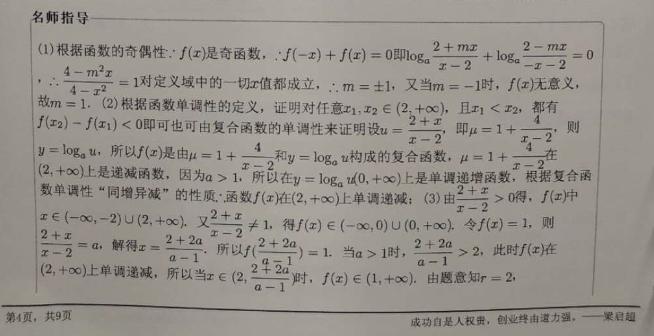 名师指导
(1)根据函数的奇偶性∵f(x)是奇函数，∴f(−x)+f(x)=0即log_a (2+mx)/(x−2) + log_a (2−mx)/(−x−2) = 0
，∴ (4−m²x)/(4−x²) = 1对定义域中的一切x值都成立，∴m=±1，又当m=−1时，f(x)无意义，
故m=1. (2)根据函数单调性的定义，证明对任意x₁,x₂∈(2,+∞)，且x₁<x₂，都有
f(x₂)−f(x₁)<0即可也可由复合函数的单调性来证明设u=(2+x)/(x−2)，即μ=1+4/(x−2)，则
y=log_a u，所以f(x)是由μ=1+4/(x−2)和y=log_a u构成的复合函数，μ=1+4/(x−2)在
(2,+∞)上是递减函数，因为a>1，所以在y=log_a u(0,+∞)上是单调递增函数，根据复合函
数单调性“同增异减”的性质∴函数f(x)在(2,+∞)上单调递减；(3)由(2+x)/(x−2)>0得，f(x)中
x∈(−∞,−2)∪(2,+∞)．又(2+x)/(x−2)≠1，得f(x)∈(−∞,0)∪(0,+∞)．令f(x)=1，则
(2+x)/(x−2)=a，解得x=(2+2a)/(a−1)．所以f((2+2a)/(a−1))=1．当a>1时，(2+2a)/(a−1)>2，此时f(x)在
(2,+∞)上单调递减，所以当x∈(2,(2+2a)/(a−1))时，f(x)∈(1,+∞)．由题意知r=2，
第4页，共9页
成功自是人权贵，创业终由道力强。——梁启超